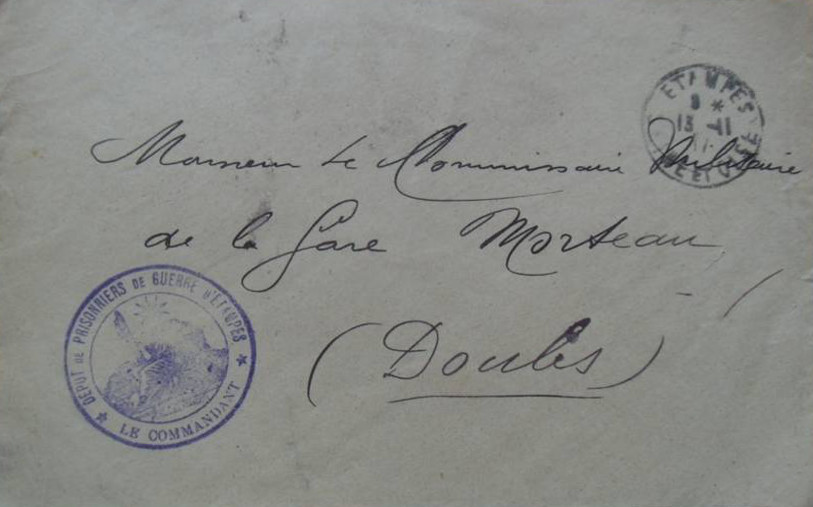 ETAMPES
8 *
13 -11
SEINE ET OISE
Monsieur le Commissaire Militaire
de la Gare Morteau
(Doubs)
DÉPOT DE PRISONNIERS DE GUERRE D'ÉTAMPES
LE COMMANDANT